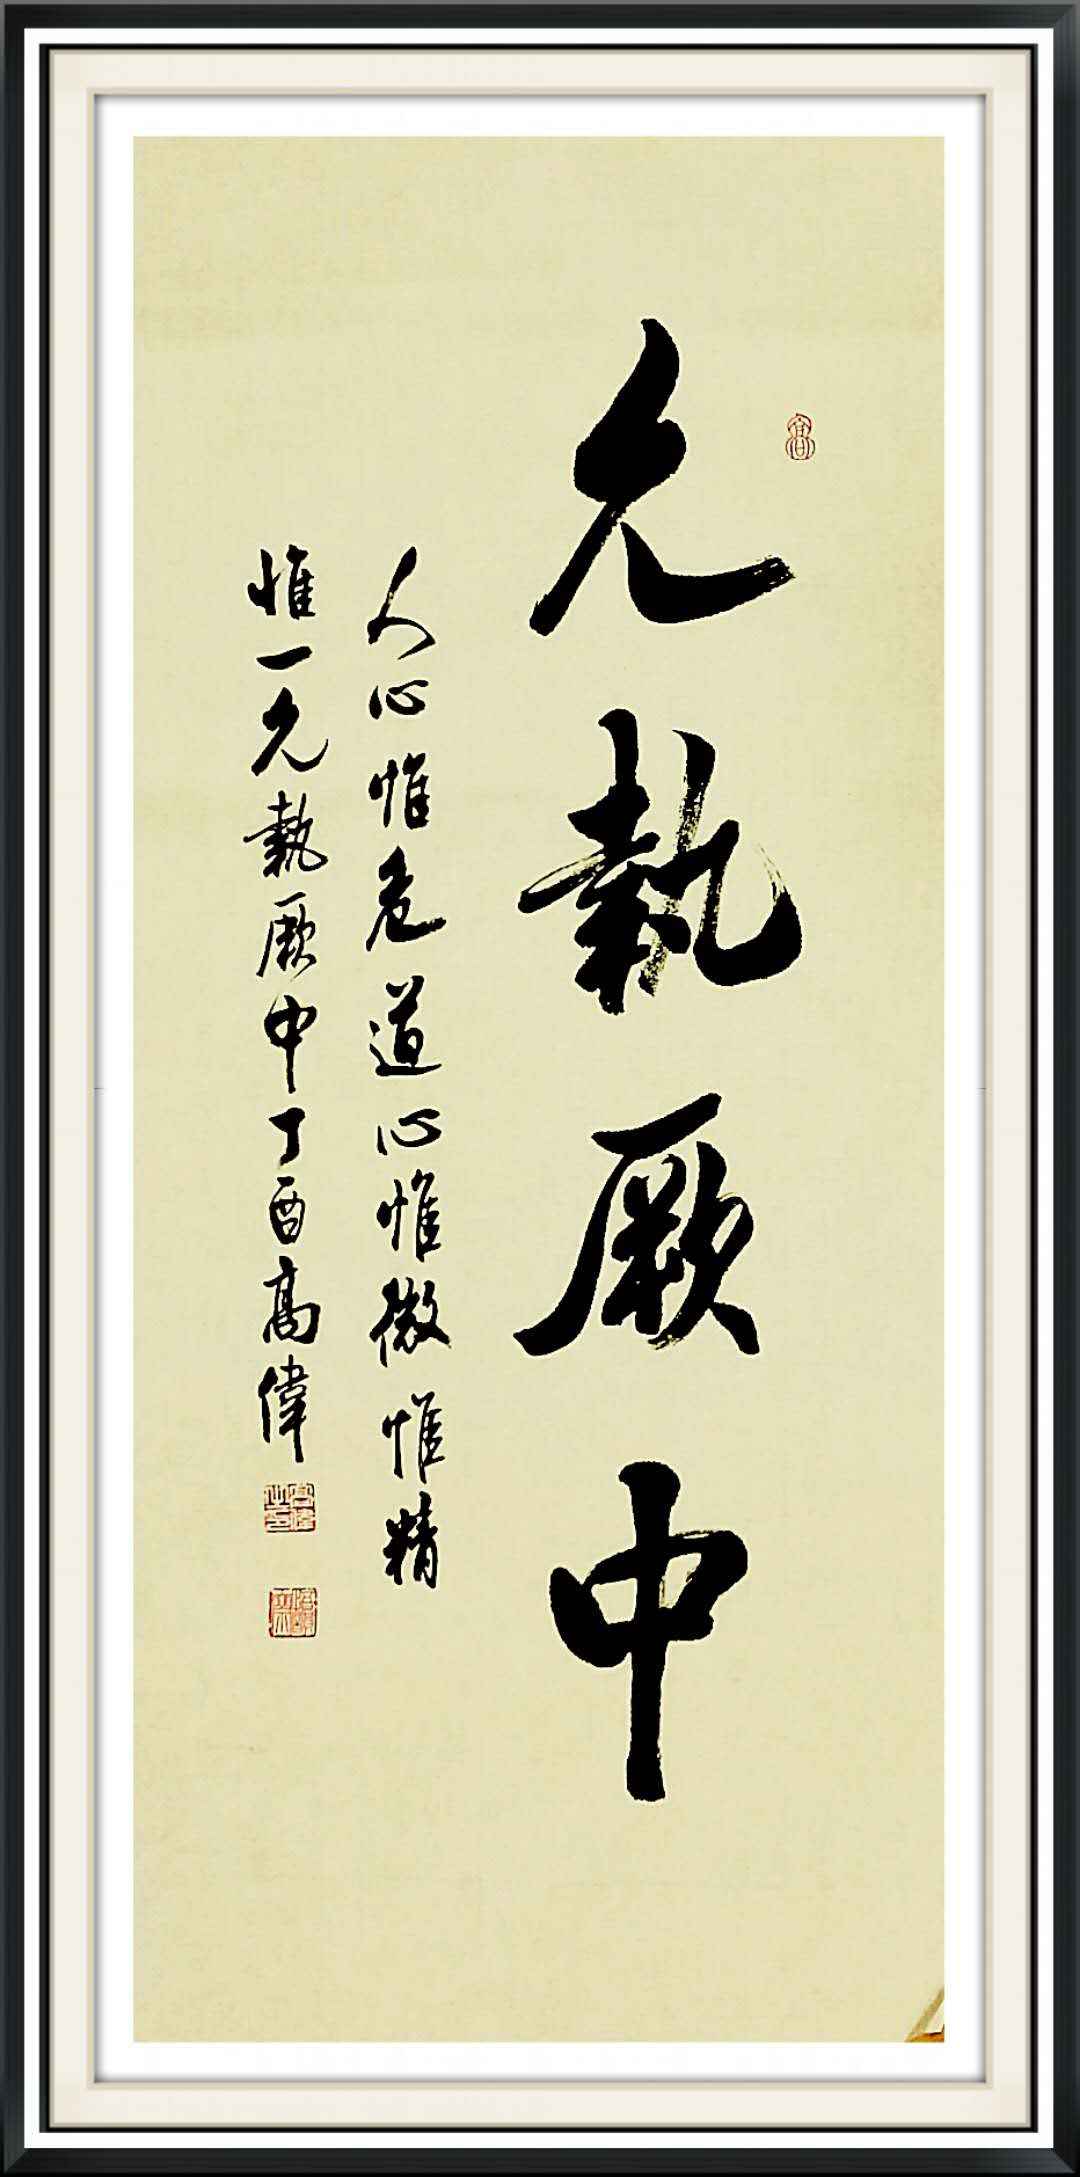 允執厥中
人心惟危道心惟微惟精
惟一允執厥中丁酉高偉
高